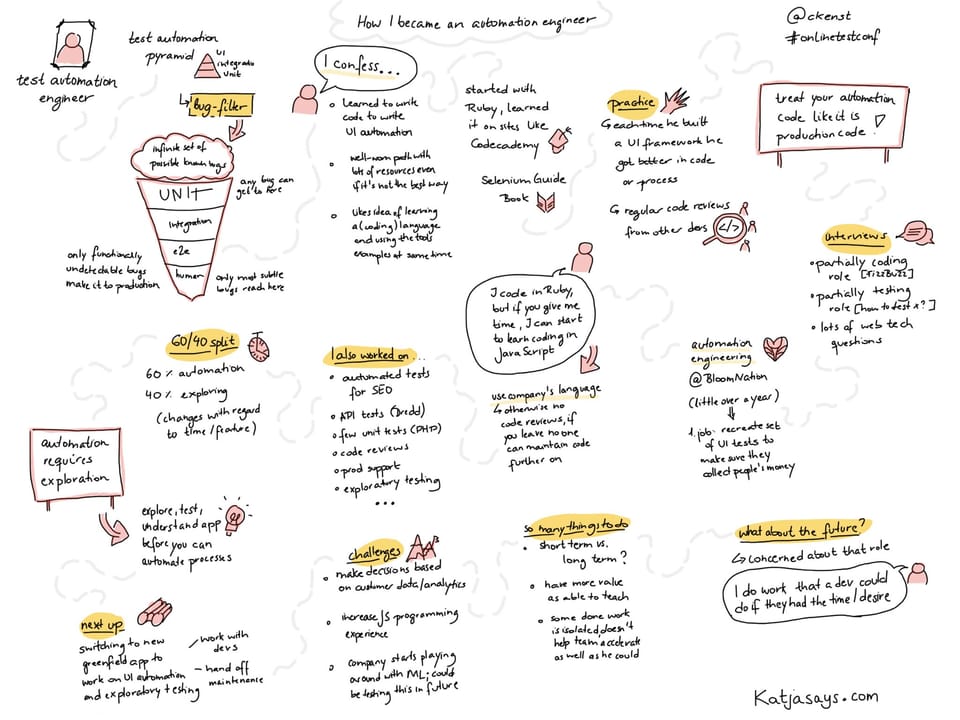 How I became an automation engineer
@ckenst
#onlinetestconf
test automation
engineer
test automation
pyramid
UI
integratio
unit
↳ bug-filter
infinite set of
possible known bugs
UNIT
Integration
e2e
human
any bug can
get to here
only functionally
undetectable bugs
make it to production
only most subtle
bugs reach here
I confess...
• learned to write
code to write
UI automation
• well-worn path with
lots of resources even
if it's not the best way
• likes idea of learning
a (coding) language
and using the tools
examples at same time
started with
Ruby, learned
it on sites like
Codecademy
Selenium Guide
Book
practice
↳ each time he built
a UI framework he
got better in code
or process
↳ regular code reviews
from other devs
</>
treat your automation
code like it is
production code!
interviews
• partially coding
role [FizzBuzz]
• partially testing
role [how to test x?]
• lots of web tech
questions
I code in Ruby,
but if you give me
time, I can start
to learn coding in
JavaScript
use company's language
↳ otherwise no
code reviews, if
you leave no one
can maintain code
further on
automation
engineering
@BloomNation
(little over a year)
↓
1. job: recreate set
of UI tests to
make sure they
collect people's money
60/40 split
60% automation
40% exploring
(changes with regard
to time/feature)
automation
requires
exploration
explore, test,
understand app
before you can
automate processes
I also worked on...
• automated tests
for SEO
• API tests (Dredd)
• few unit tests (PHP)
• code reviews
• prod support
• exploratory testing
...
challenges
• make decisions based
on customer data/analytics
• increase JS programming
experience
• company starts playing
around with ML; could
be testing this in future
so many things to do
• short term vs.
long term?
• have more value
as able to teach
• some done work
is isolated, doesn't
help team accelerate
as well as he could
what about the future?
↳ concerned about that role
I do work that a dev could
do if they had the time/desire
next up
switching to new
greenfield app to
work on UI automation
and exploratory testing
work with
devs
hand off
maintenance
Katjasays.com